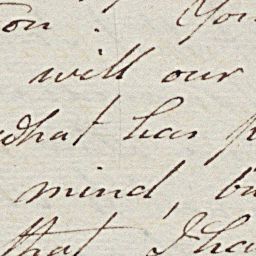 on. You
will our
what has p
mind, bu
that I ha